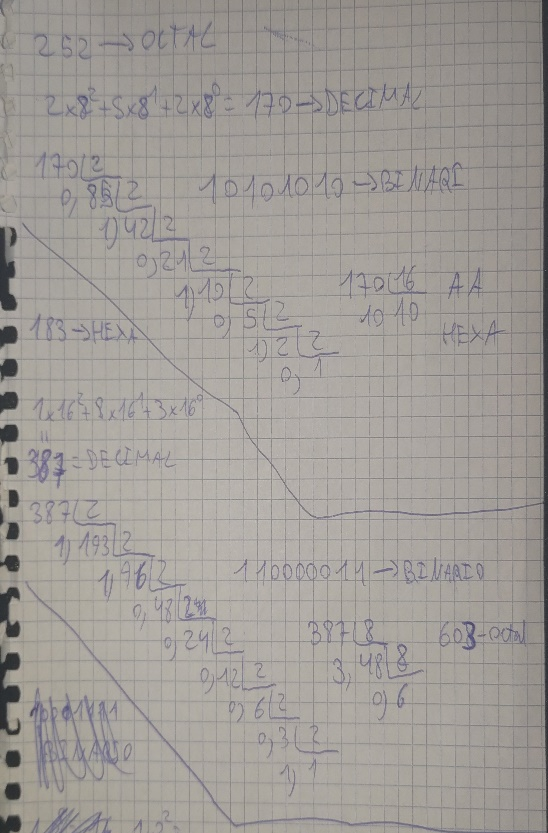 252 → OCTAL
2x8²+5x8¹+2x8⁰= 170 → DECIMAL
170 | 2
0, 85 | 2
10101010 → BINARI
1) 42 | 2
0, 21 | 2
1) 10 | 2
0, 5 | 2
1) 2 | 2
0, 1
170 | 16
10 10
AA
HEXA
183 → HEXA
1x16²+8x16¹+3x16⁰
"
387 = DECIMAL
387 | 2
1, 193 | 2
1, 96 | 2
0, 48 | 2
0, 24 | 2
0, 12 | 2
0, 6 | 2
0, 3 | 2
1, 1
110000011 → BINARIO
387 | 8
3, 48 | 8
0, 6
603 - octal